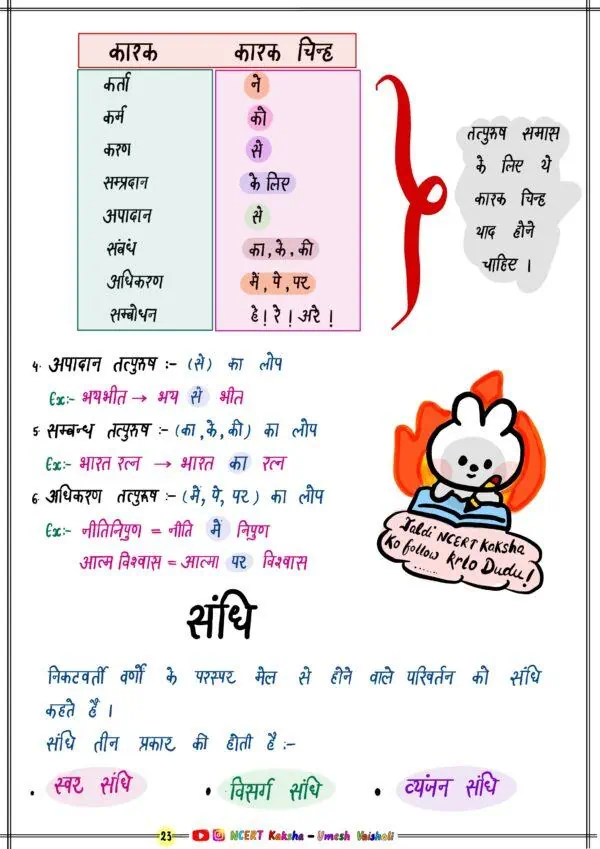 कारक कारक चिन्ह
कर्ता ने
कर्म को
करण से
सम्प्रदान के लिए
अपादान से
संबंध का, के, की
अधिकरण में, पे, पर
सम्बोधन हे! रे! अरे!
तत्पुरुष समास
के लिए ये
कारक चिन्ह
याद होने
चाहिए।
4. अपादान तत्पुरुष :- (से) का लोप
Ex:- भयभीत → भय से भीत
5. सम्बन्ध तत्पुरुष :- (का, के, की) का लोप
Ex:- भारत रत्न → भारत का रत्न
6. अधिकरण तत्पुरूष :- (में, पे, पर) का लोप
Ex:- नीतिनिपुण = नीति में निपुण
आत्म विश्वास = आत्मा पर विश्वास
Jaldi NCERT Kaksha
Ko follow krlo Dudu!
संधि
निकटवर्ती वर्णों के परस्पर मेल से होने वाले परिवर्तन को संधि
कहते है।
संधि तीन प्रकार की होती है :-
• स्वर संधि • विसर्ग संधि • व्यंजन संधि
23 NCERT Kaksha - Umesh Vaishali